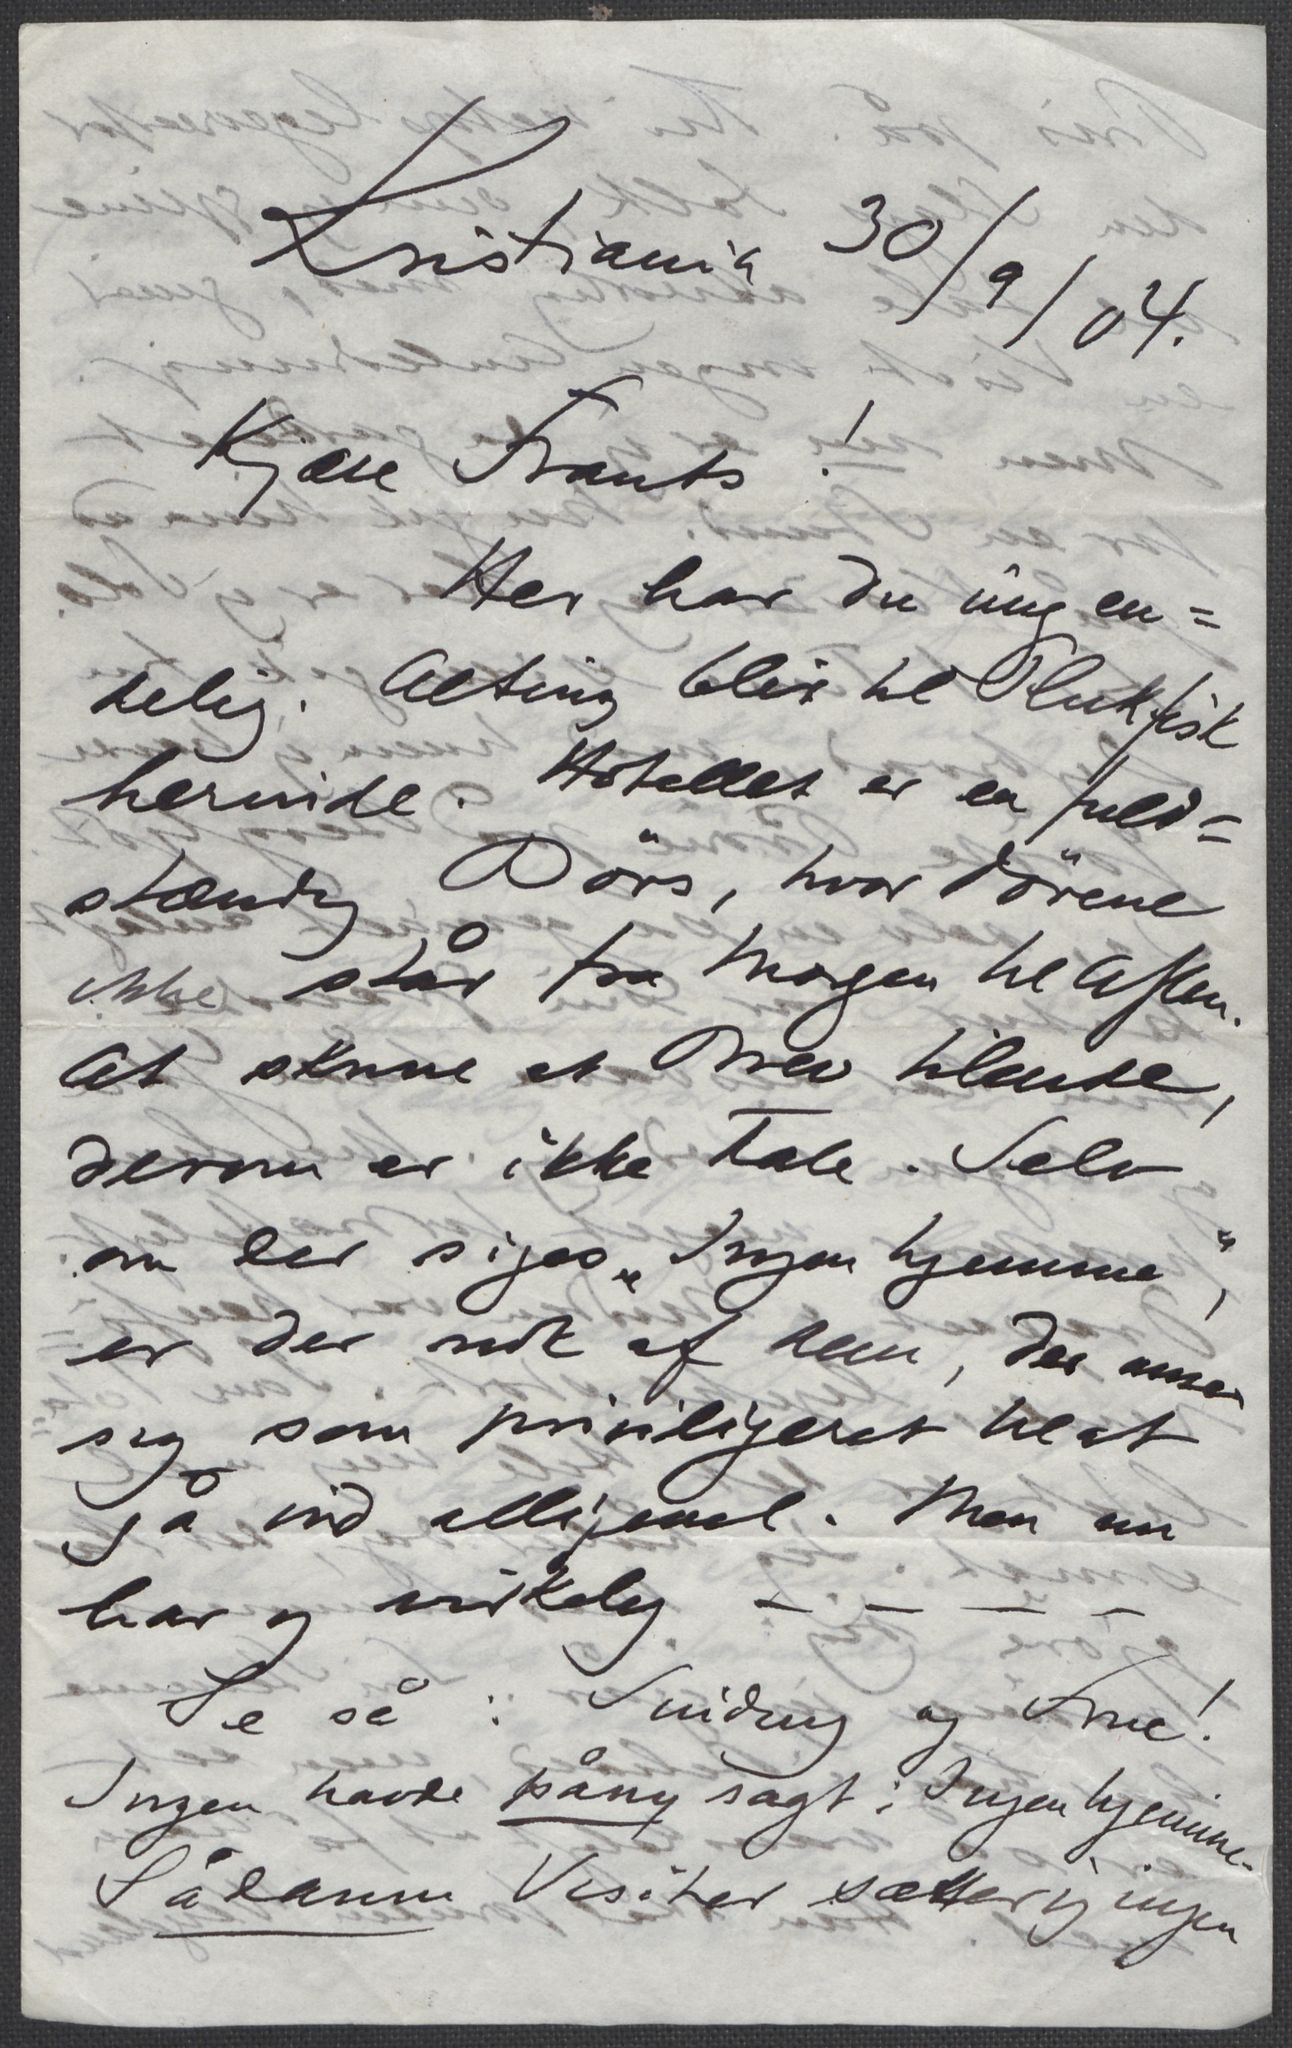 Kristiania 30/9/04.
Kjære Frants!
Her har du mig en=
delig. Alting blir til Plukfisk
herinde. Hotellet er en fuld=
stændig Börs, hvor Dörene
ikke står fra Morgen til Aften.
At skrive et Brev tilende,
derom er ikke Tale. Selv
om der siges „Ingen hjemme",
er der nok af dem, der anser
sig som priviligeret til at
gå ind alligevel. Men nu
har jeg virkelig – – – – –
Se så: Sinding og Frue!
Ingen havde påny sagt: Ingen hjemme.
Sådanne Visiter sætter jeg ingen